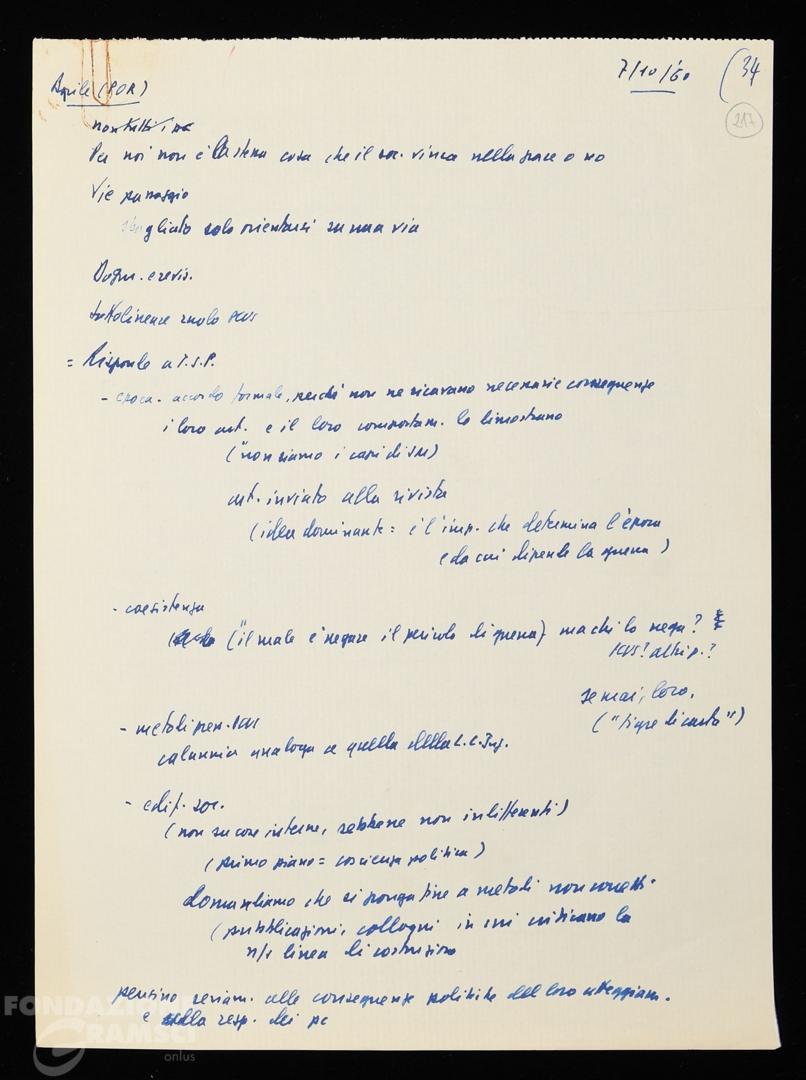 7/10/60
(34
217
Aprile (POR)
non tutti i
Per noi non è la stessa cosa che il soc. vinca nella pace o no
Vie passaggio
sbagliato solo orientarsi su una via
Dogm. e revis.
sottolineare ruolo PCUS
= Risponde a T.S.P.
- epoca. accordo formale, perché non ne ricavano necessarie conseguenze
i loro art. e il loro comportam. lo dimostrano
("non siamo i capi di SM)
art. inviato alla rivista
(idea dominante = è l'imp. che determina l'epoca
(da cui dipende la guerra)
- coesistenza
("il male è negare il pericolo di guerra) ma chi lo nega?
PCUS? altri p.?
se mai, loro.
("tigre di carta")
- metodi pres. PCUS
calunnia analoga a quella della L.C. Jug.
- edif. soc.
(non su cose interne, sebbene non indifferenti)
(primo piano = coscienza politica)
domandiamo che si ponga fine a metodi non corretti
(pubblicazioni, colloqui in cui criticano la
n/s linea di costruzione
pensino seriam. alle conseguenze politiche del loro atteggiam.
e sulla resp. dei pc
FONDAZIONE
GRAMSCI
onlus